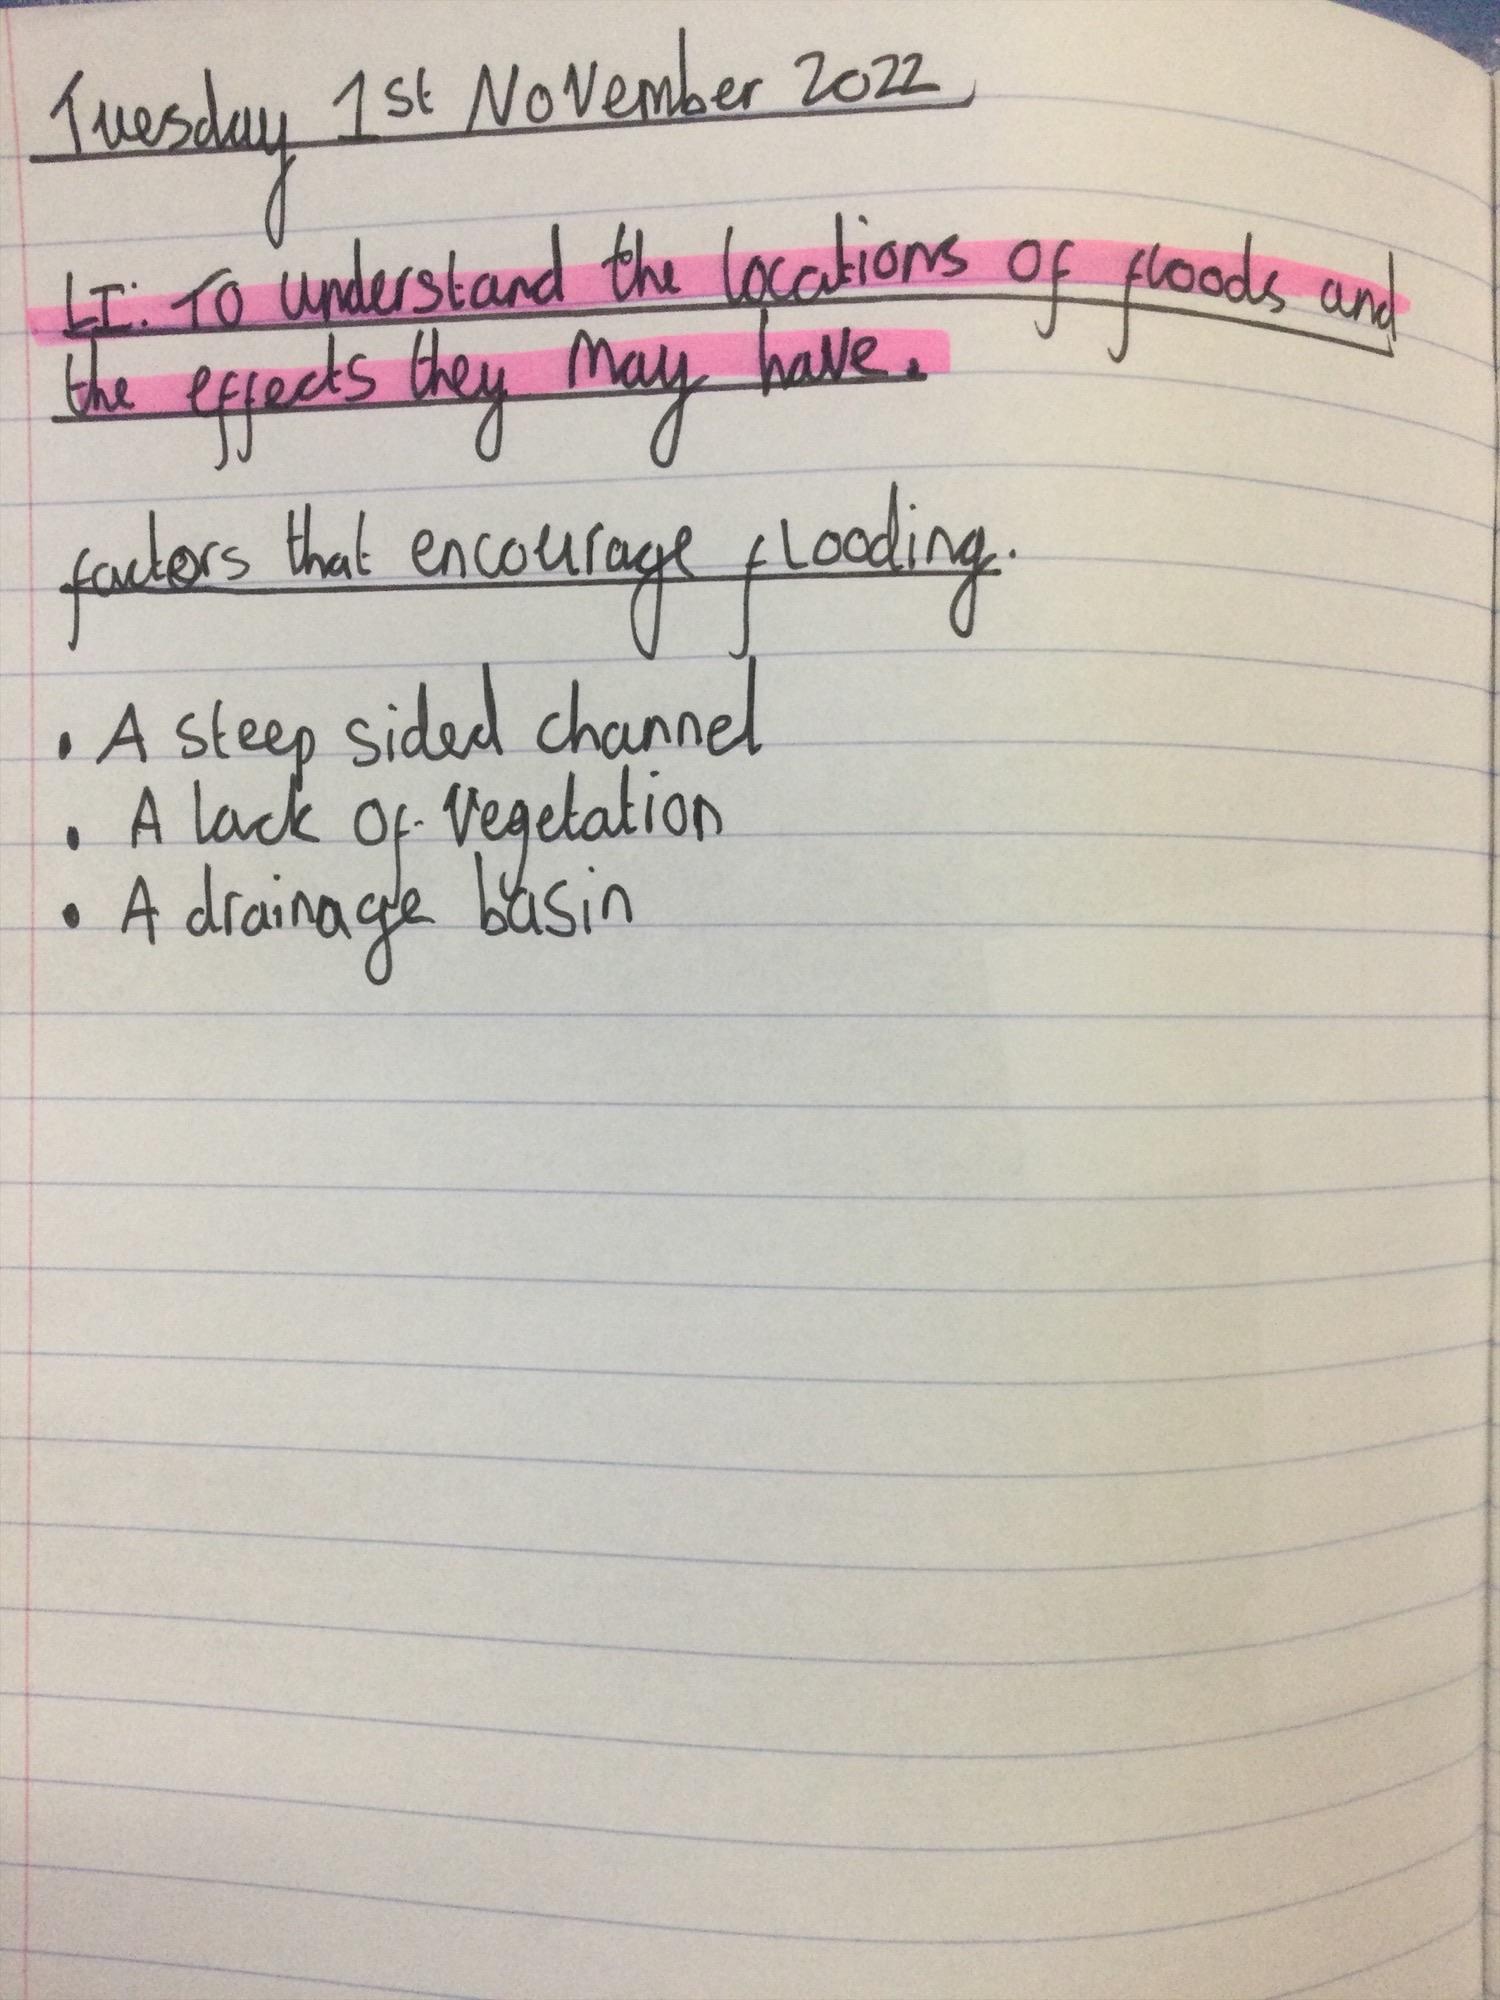 Tuesday 1st November 2022
LI: To understand the locations of floods and
the effects they may have.
factors that encourage flooding.
• A steep sided channel
• A lack of vegetation
• A drainage basin